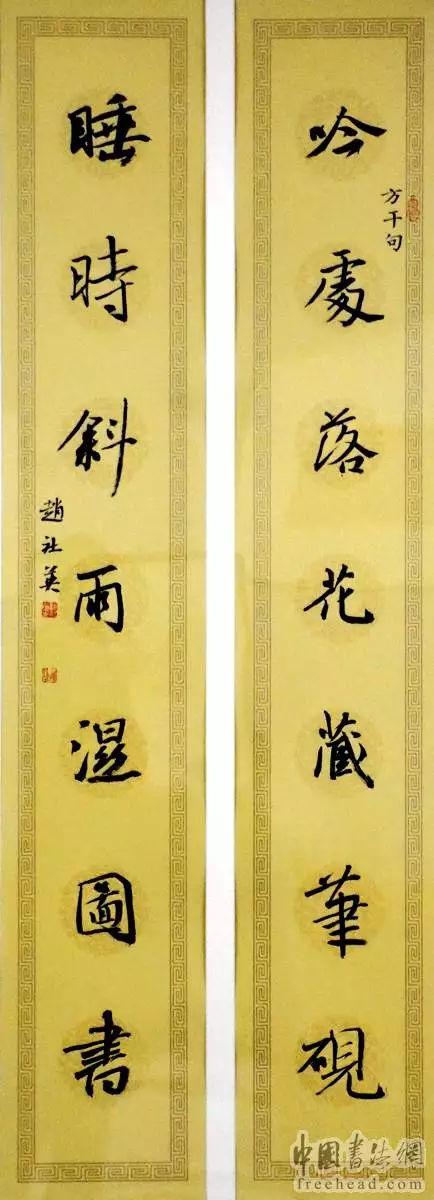 吟處落花藏筆硯
方干句
睡時斜雨濕圖書
趙社英
中國書法網
freehead.com